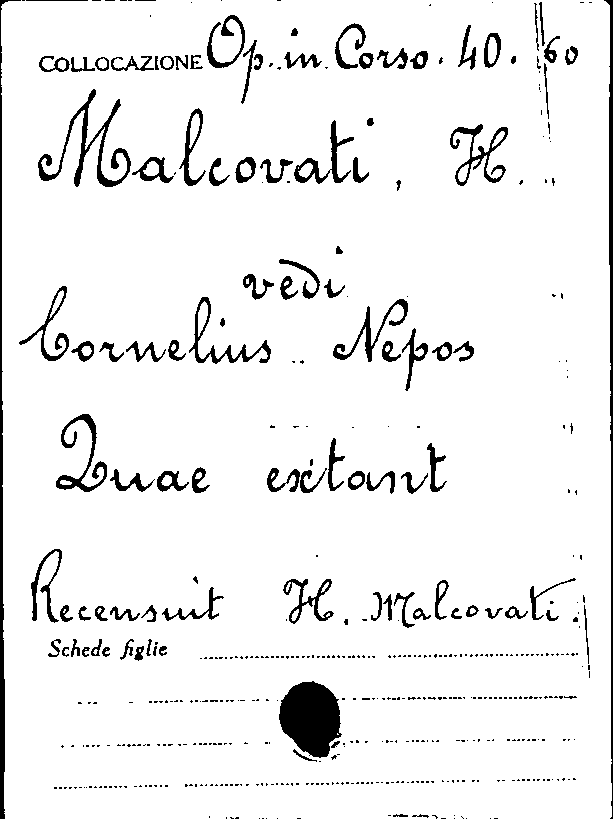 COLLOCAZIONE Op. in Corso. 40. 60
Malcovati, H.
vedi
Cornelius Nepos
Quae extant
Recensuit H. Malcovati.
Schede figlie